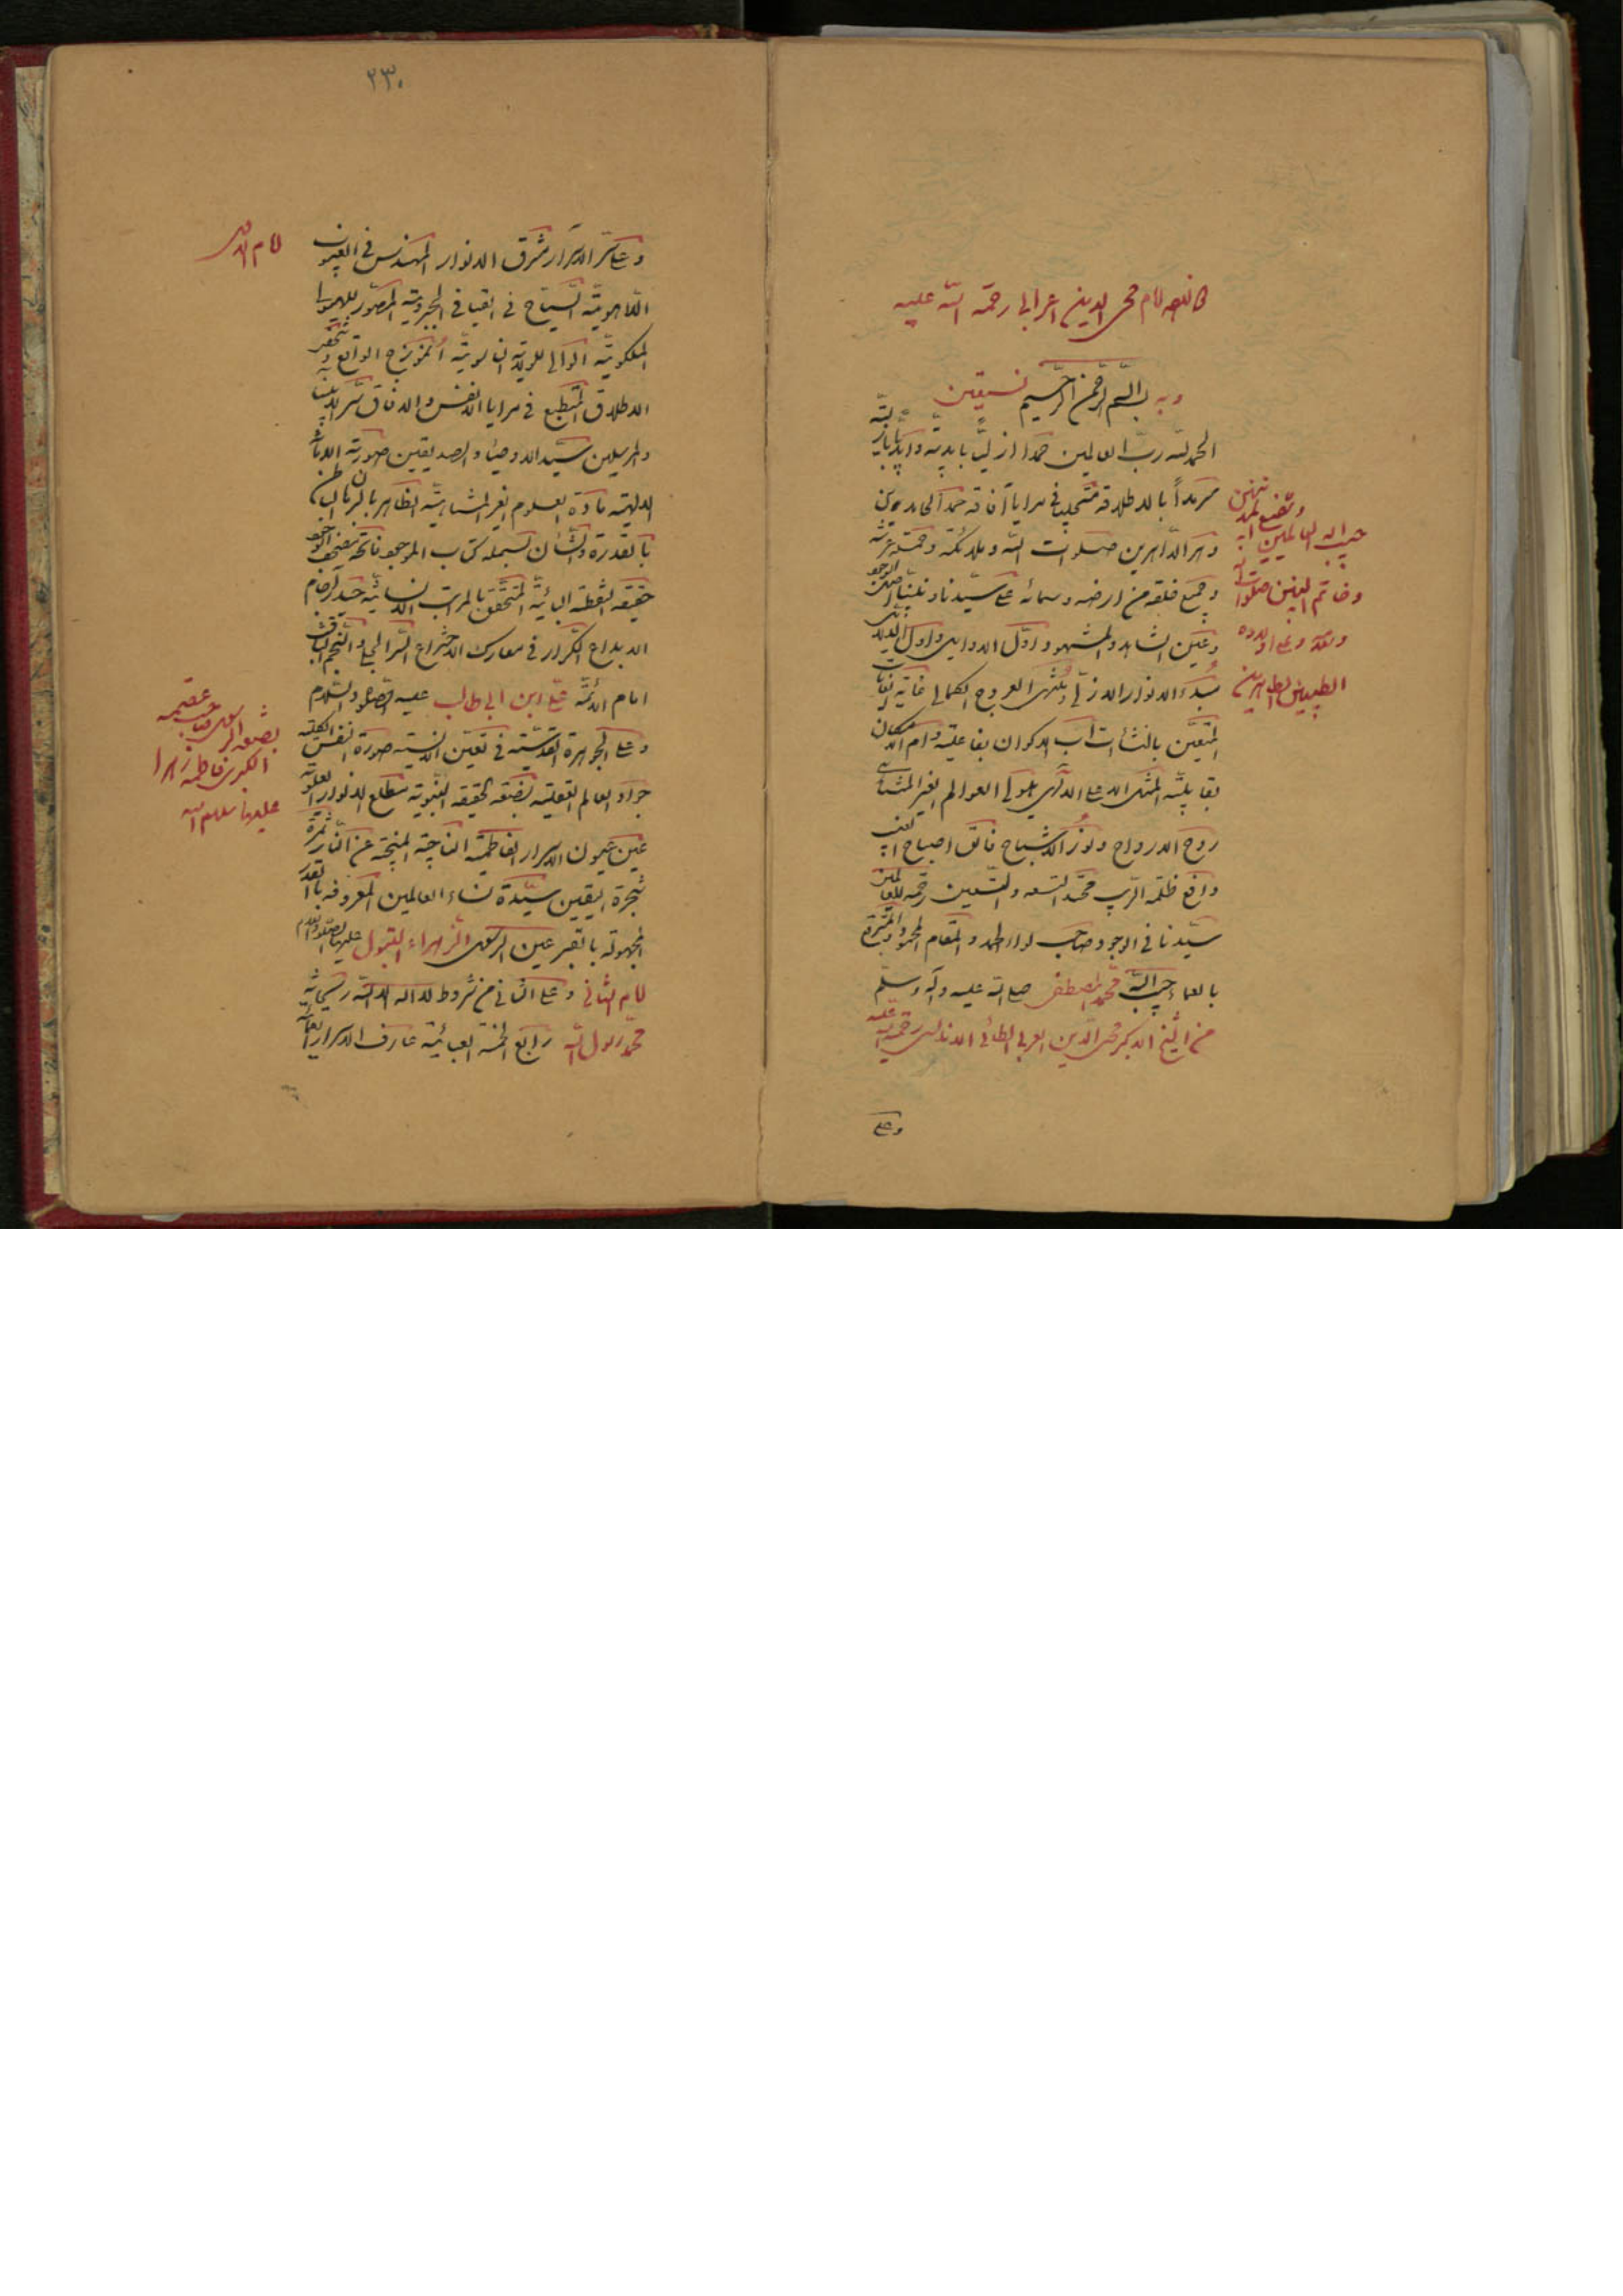 محى الدين اعرابى رحمة الله عليه
وبه بسم الله الرحمن الرحيم نستعين
الحمد لله رب العالمين حمدا ازليا بابديته وابديا بازليته
سرمدا بالاطلاقه متجليا فى مرايا آفاقه حمد الحامدين
دهر الداهرين صلوات الله وملائكته وحملة عرشه
وجميع خلقه من ارضه وسمائه على سيدنا ونبينا اصل الوجود
وعين الشاهد والمشهود اول الاوايل وادل الدلايل
مبدء الانوار الازلى ومنتهى العروج الكمالى غاية الغايات
المتعين بالنشآت اب الاكوان بفاعليته وام الامكان
بقابليته المثل الاعلى الالهى هيولى العوالم الغير المتناهى
روح الارواح ونور الاشباح فالق اصباح الغيب
دافع ظلمة الريب محتد التسعة والتسعين رحمة للعالمين
سيدنا فى الوجود صاحب لواء الحمد والمقام المحمود المتبرقع
بالعماء حبيب الله محمد المصطفى صلى الله عليه وآله وسلم
من الشيخ الاكبر محى الدين العربى الطائى الاندلسى رحمة الله عليه
حبيب اله العالمين
وخاتم النبيين صلوات
الطيبين الطاهرين
وعلى
٢٣٠
وعلى سر الاسرار مشرق الانوار المهندس فى الغيوب
اللاهوتية السياح فى الفيافى الجبروتية المصور للهيولى
الملكوتية الوالى للولاية الناسوتية انموذج الواقع وشخص
الاطلاق المنطبع فى مرايا الانفس والآفاق سر الانبياء
والمرسلين سيد الاوصياء والصديقين صورة الامانة
الالهية مادة العلوم الغير المتناهية الظاهر بالبرهان الباطن
بالقدرة والشأن بسملة كتاب الموجود فاتحة مصحف الوجود
حقيقة النقطة البائية المتحقق بالمراتب الانسانية حيدر آجام
الابداع الكرار فى معارك الاختراع السر الجلى والنجم الثاقب
امام الائمة على ابن ابى طالب عليه الصلوة والسلام
وعلى الجوهرة القدسية فى تعين الانسية صورة النفس الكلية
جواد العالم العقلية بضعة الحقيقة النبوية مطلع الانوار العلوية
عين عيون الاسرار الفاطمية الناجية المنجية عن النار ثمرة
شجرة اليقين سيدة نساء العالمين المعروفة بالقدر
المجهولة بالقبر عين الرسول الزهراء البتول عليها الصلوة والسلام
امام الثانى وعلى الثانى من شروط لا اله الا الله ريحانة
محمد رسول الله رابع الخمسة العبائية عارف الاسرار العمائية
بضعة الرسول
الكبرى فاطمة زهرا
عليها سلام الله